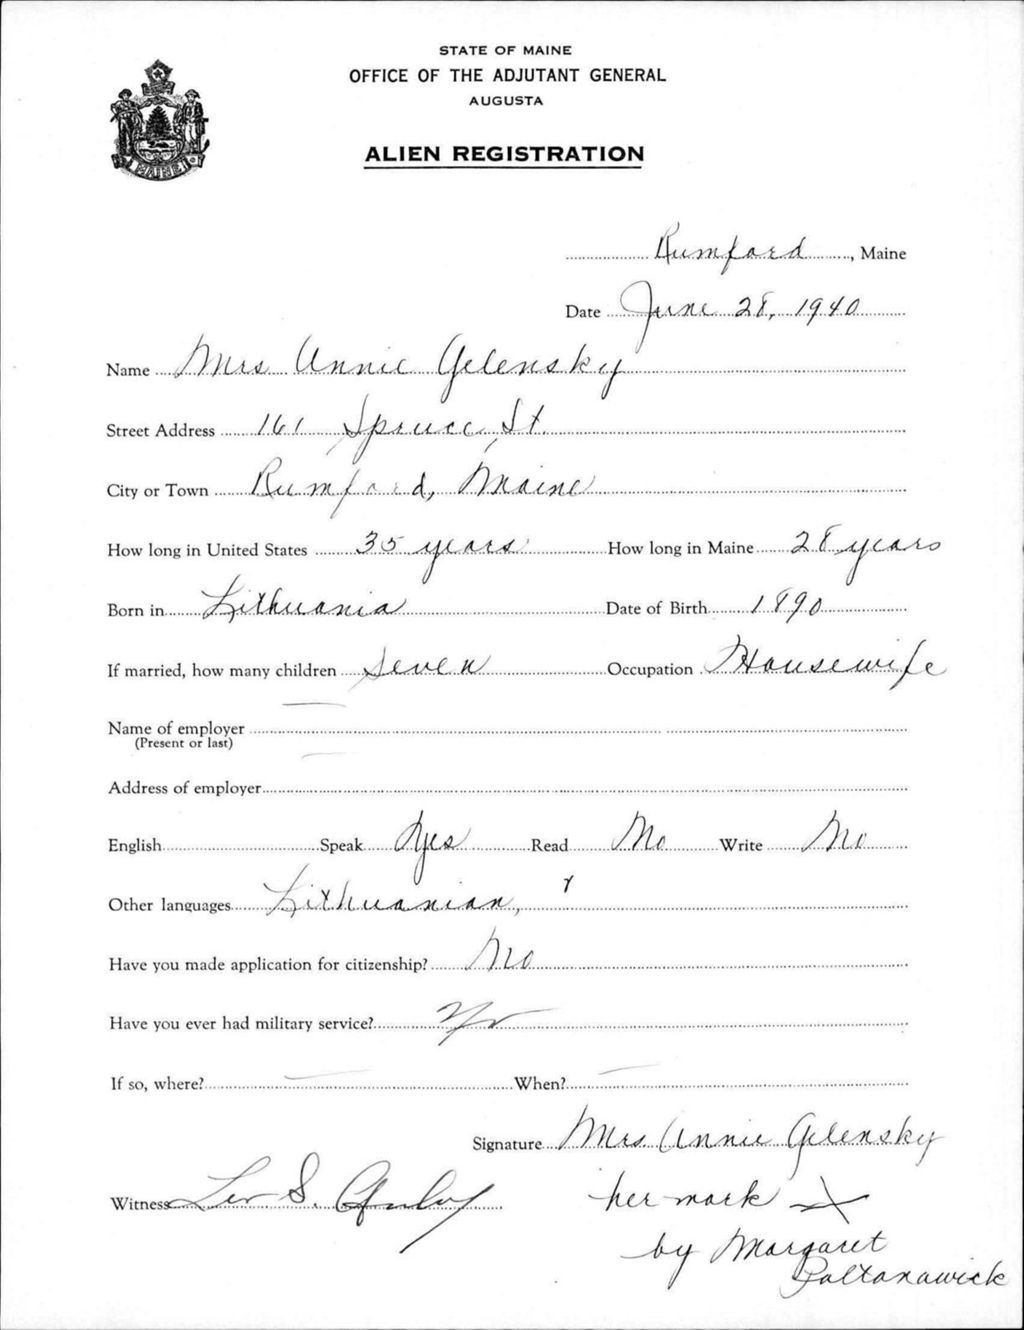 STATE OF MAINE
OFFICE OF THE ADJUTANT GENERAL
AUGUSTA
ALIEN REGISTRATION
MAINE
Rumford, Maine
Date June 28, 1940
Name Mrs Annie Gelensky
Street Address 161 Spruce St.
City or Town Rumford, Maine
How long in United States 35 years How long in Maine 28 years
Born in Lithuania Date of Birth 1890
If married, how many children Seven Occupation Housewife
Name of employer —
(Present or last)
Address of employer —
English Speak Yes Read No Write No
Other languages Lithuanian,
Have you made application for citizenship? No
Have you ever had military service? No
If so, where? — When? —
Signature Mrs Annie Gelensky
Witness S. her mark X
by Margaret
Poltanawick